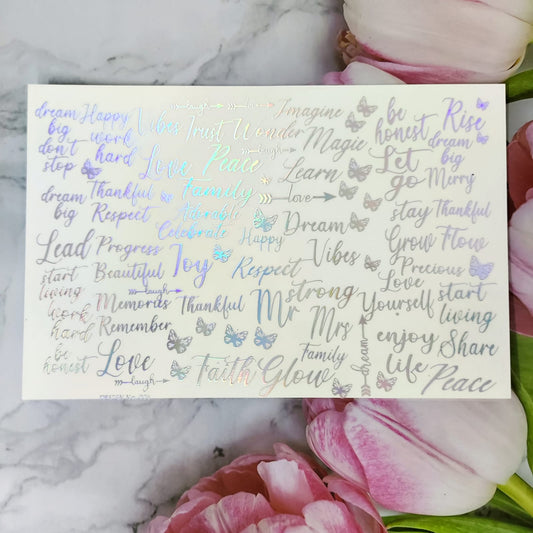 dream big
Happy
Vibes
laugh
live
Imagine
be honest
Rise
don't stop
work hard
Trust
Wonder
Magic
dream big
Love
Peace
laugh
Learn
Let go
Merry
dream big
Thankful
Family
love
stay
Thankful
Respect
Adorable
Dream
Grow
Flow
Lead
Progress
Celebrate
Happy
Vibes
Precious
start living
Beautiful
Joy
Respect
Love Yourself
start living
laugh
Memories
Thankful
Mr
strong
work hard
Remember
Mrs
dream
enjoy life
Share
be honest
Love
laugh
Faith
Glow
Family
Peace